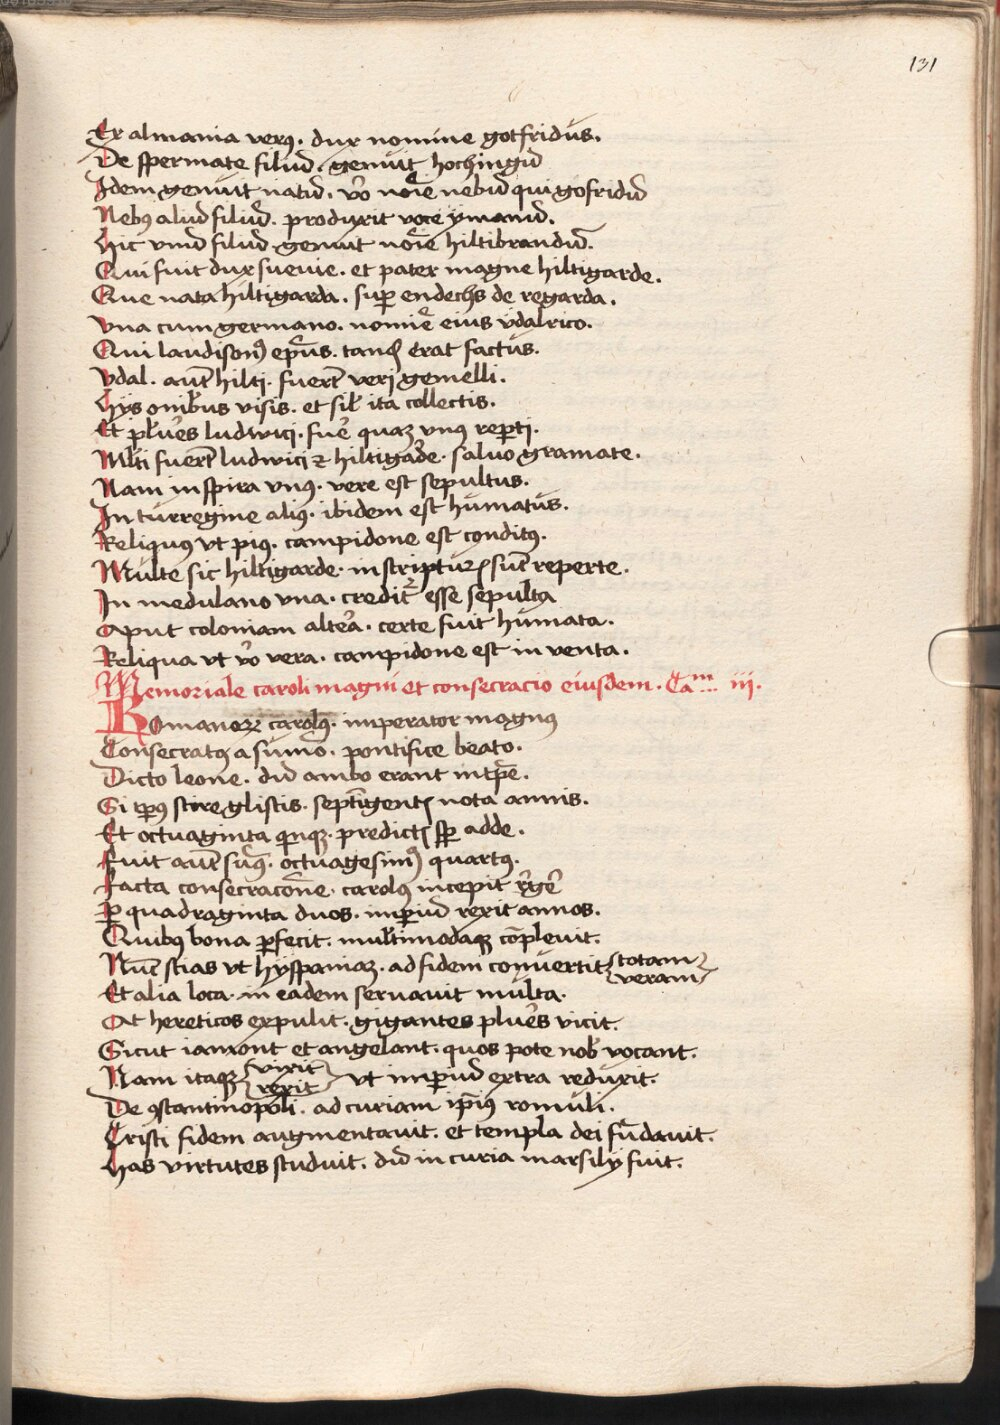 131
Ex almania verꝯ. dux nomine gotfridus.
De spermate filiū. genuit hochingū
Idem genuit natū. v̊o noīe nebūd qui gofridū
Nebꝯ aliud filiū. produxit voce ymanū.
Hic vnū filiū genuit noīe hiltibrandū.
Qui fuit dux suevie. et pater magne hiltigarde.
Que nata hiltigarda. sup̱ endechs de regarda.
Vna cum germano. nomīe eius vdalrico.
Qui laudisonꝰ ep̄us. tandē erat factus.
Vdal. aut̄ hilti. fuer̄t veri gemelli.
Hijs om̄ibus visis. et sil̄ ita collectis.
Et pl̄ures ludwici. fue᷑ quaꝫ vnꝯ rep̱ti.
Ml̄ti fuer̄t ludwici ⁊ hiltigar̄de. saluo gramate.
Nam in spira vnꝯ. vere est sepultus.
In turregine aliꝯ. ibidem est humatus.
Reliquꝯ vt piꝯ. campidone est conditꝯ.
Multe sic hiltigarde. in scripturꝭ sūt reperte.
In medulano vna. creditᷣ esse sepulta
Aput coloniam alte᷑a. certe fuit humata.
Reliqua vt v̊o vera. campidone est in venta.
Memoriale caroli magni et consecracio eiusdem. Caᵐ iij.
Romanoꝝ carolꝯ. imperator magnꝯ
Consecratꝯ a sūmo. pontifice beato.
Dicto leone. dū ambo erant in tp̄e.
Si tp̄ꝯ scire glistis. septīgentꝭ nota annis.
Et octuaginta qinqꝫ. predictꝭ sp̱ adde.
Fuit aut̄ suꝯ. octuagesimꝰ quartꝯ.
Facta consecrac̄one. carolꝯ incepit r᷑ge᷑
ꝑ quadraginta duos. imꝑiū rexit annos.
Quibꝯ bona ꝑfecit. multimodaqꝫ cōpleuit.
Nūc scias vt hyspaniaꝫ. ad fidem conuertit totam veram
Et alia loca. in eadem seruauit multa.
At hereticos expulit. gigantes plue᷑s vicit.
Sicut iamont et angelant. quos pote nob̄ vocant.
Nam itaqꝫ vixit rexit vt imꝑiū extra reduxit.
De ꝯstantinopoli. ad curiam ip̄ius romuli.
Cristi fidem augmentauit. et templa dei fūdauit.
Has virtutes studuit. dū in curia marsilij fuit.